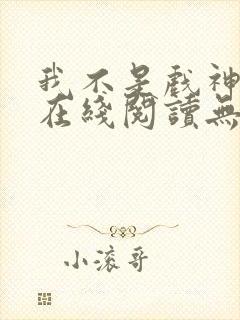 我不是戏神
在綫閱讀無
小滚哥